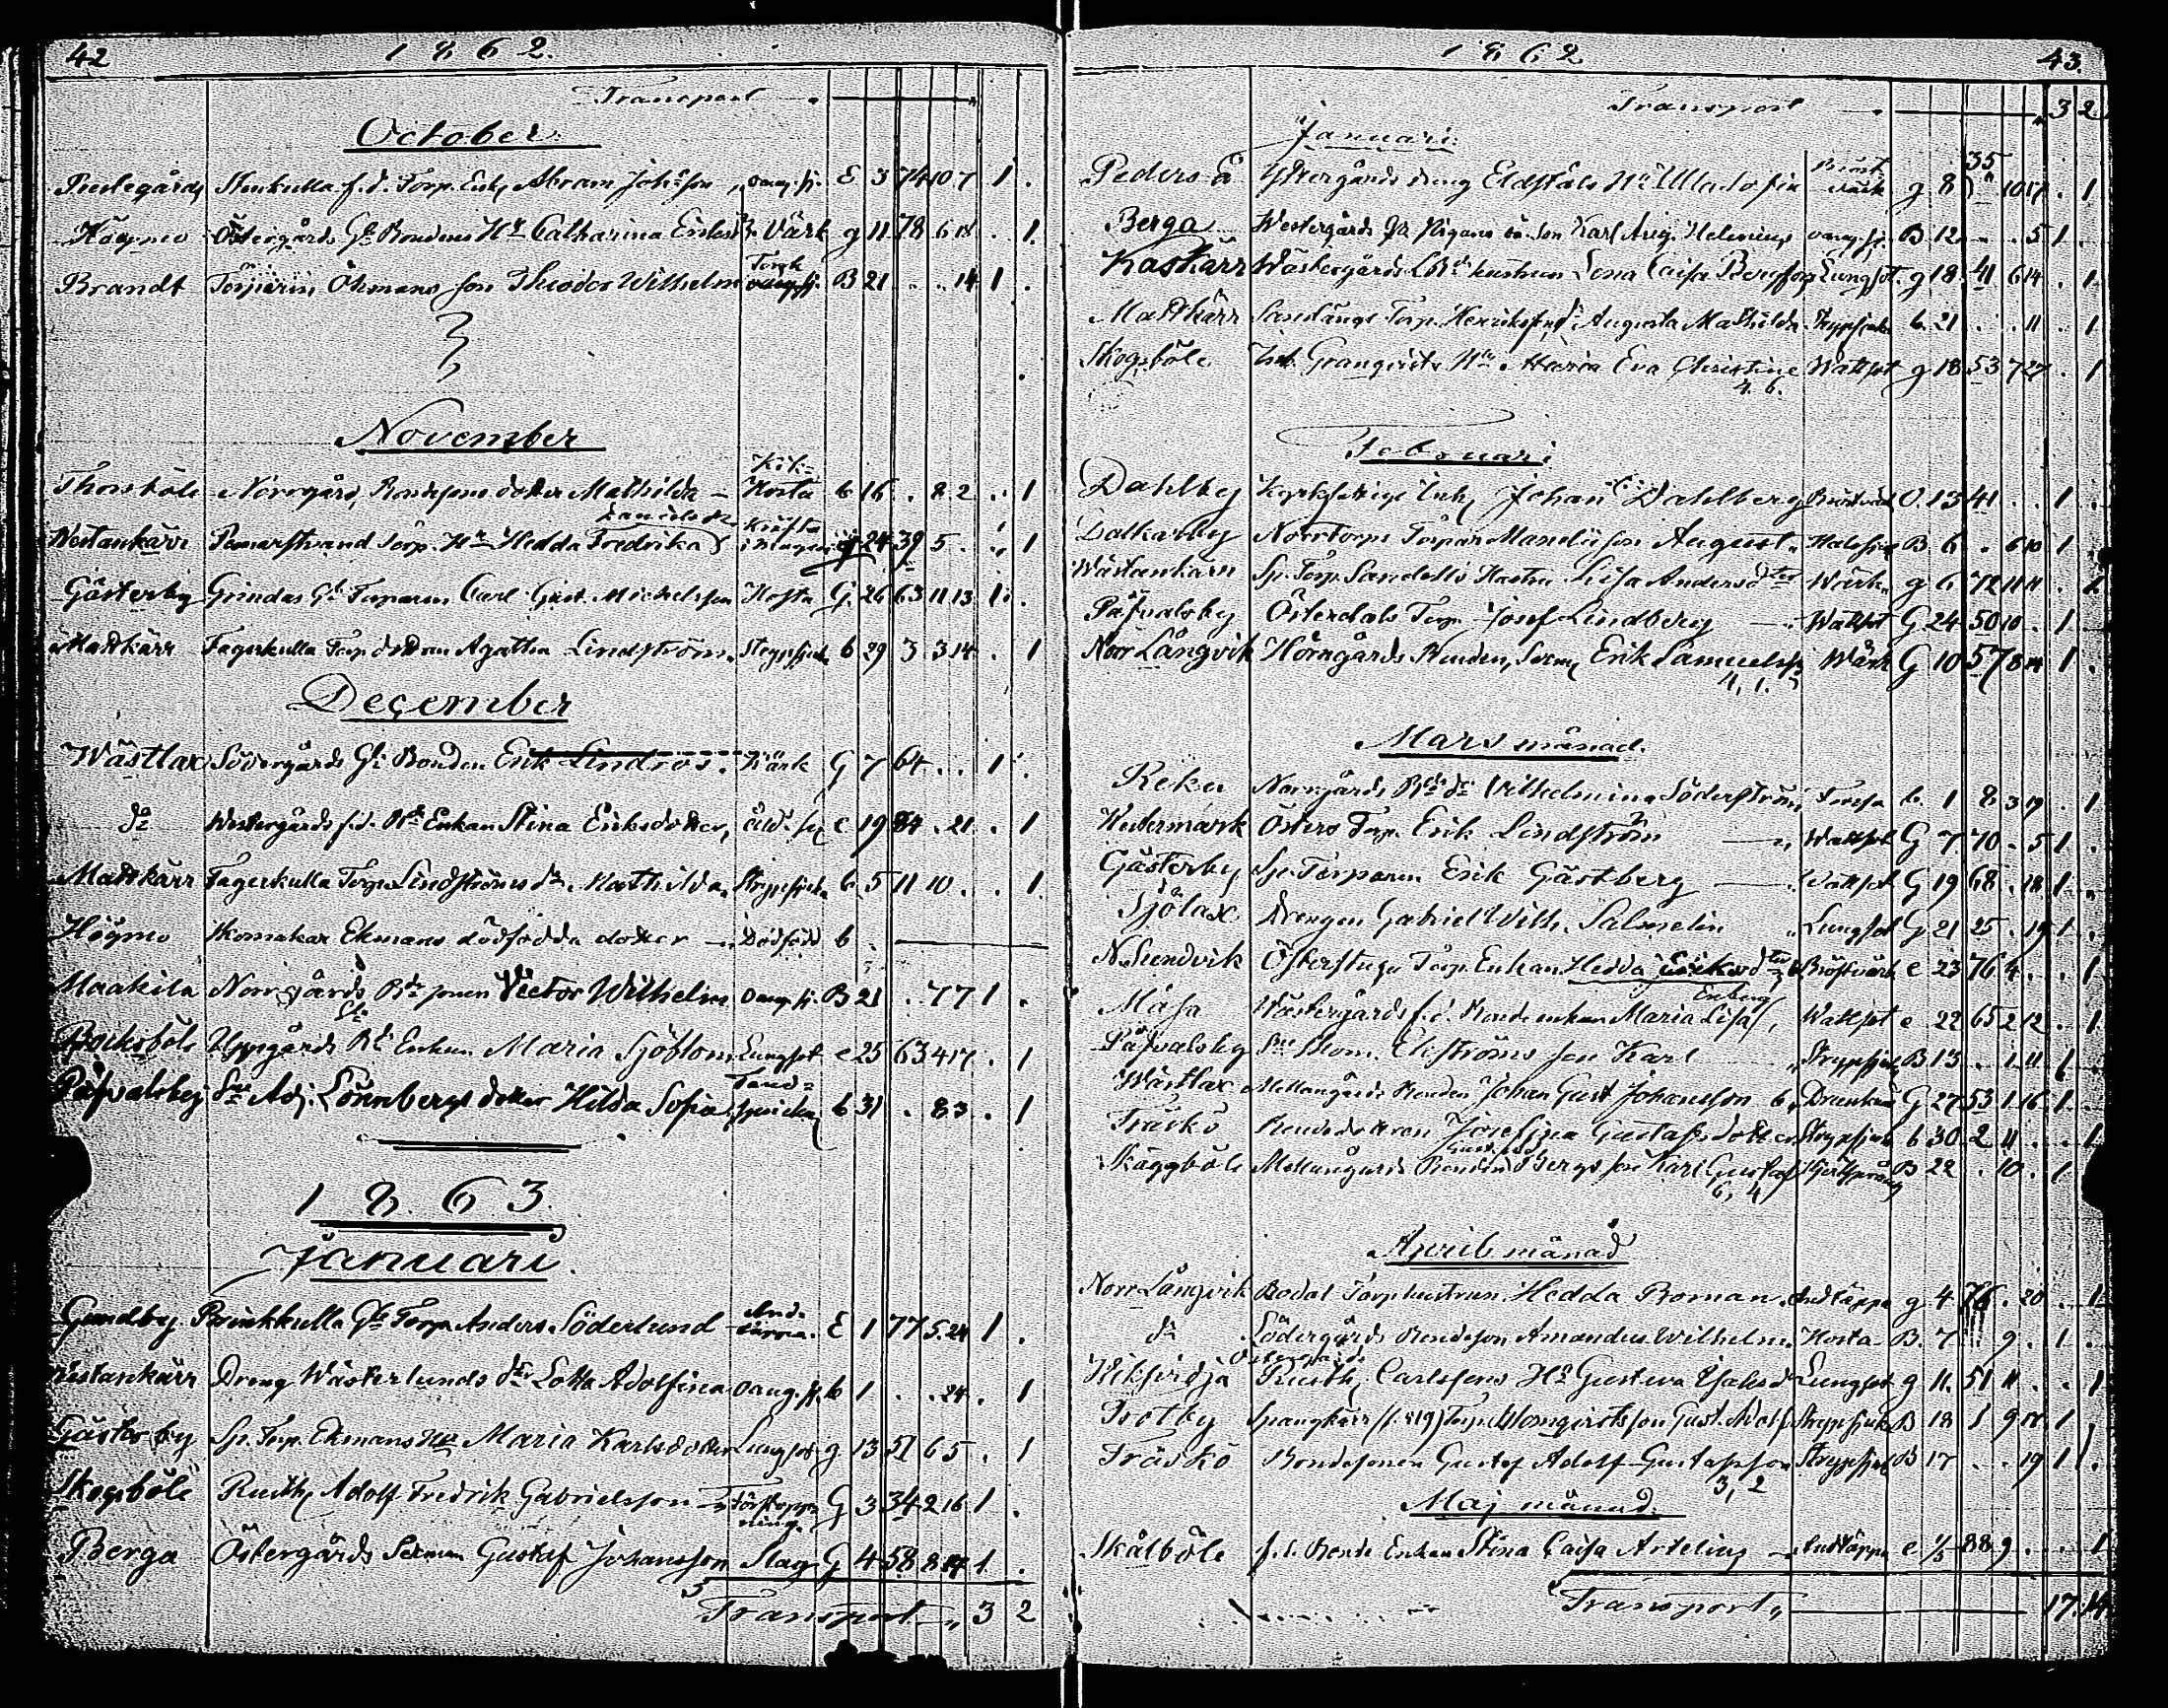 42 1862.
Transport
October.
Prestegård Stenkulla f.d. Torp. Enkl. Abram Joh:sson oang. sj. E 3 74 10 7 1 .
Högmo Östergårds Gl. Bondens H:u Catharina Ericsd:r Värk g 11 78 6 18 . 1.
Brandt Torparin Öhmans son Theodor Wilhelm oang. sj. B 21 . . 14 1 .
November
Kik=
Thorsböle Norrgård, Bondesons dotter Mathilda – Hosta b 16 . 8 2 . 1
Danielsdr. Kräfta
Westankärr Torp. H:u Hedda Fredrika i magen g 24 39 5 . . 1
Gästerby Grindas Gl. Torparen Carl Gust. Michelsson Hosta G. 26 63 11 13 1 .
Mattkärr Fagerkulla Torp. dottren Agatha Lindström. Strypsjuka b 29 3 3 14 . 1
December
Wästlax Södergårds Gl. Bonden Erik Lindros. Värk G 7 64 . . 1 .
d:o Westergårds f.d. Enkan Stina Eriksdotter, åld. e 19 84 . 21 . 1
Mattkärr Fagerkulla Torp. Lindströms dr. Mathilda. Strypsjuka b 5 11 10 . . 1
Högmo Skomakar Ekmans dödfödda dotter – Dödfödd b .
Maakila Norrgårds Bds sonen Victor Wilhelm oang. sj. B 21 . 7 7 1 .
Bocksböle Uppgårds Bd. Enkan Maria Sjöblom Lungsot e 25 63 4 17 . 1
Tand=
Påfvalsby Adj. Lönnbergs dotter Hilda Sofia, sprickn b 31 . 8 3 . 1
1863.
Januari.
Gundby Brinkkulla Gl. Torp. Anders Söderlund Andtäppa. E 1 77 5 24 1 .
Westankärr Dreng Wästerlunds dr. Lotta Adolfina oang. sj. b 1 . . 24 . 1
Gästerby Sp. Torp. Ekmans H:u Maria Karlsdotter Lungsot g 13 51 6 5 . 1
Skogsböle Rusth. Adolf Fredrik Gabrielsson – Förstoppning. G 3 34 2 16 1 .
Berga Östergårds Sexman Gustaf Johansson Slag G 4 58 8 14 1 .
Transport – „ 3 2
1862 43.
Transport 3 2
Januari.
Pederså Yttergårds dreng Eldståls H:u Ulla Sofia Bröstvärk g 8 35 10 17 . 1
Berga Westergårds son Karl Aug. Helenius oang. sj. B 12 . . 5 1 .
Kaskärr Wästergårds hustrun Lena Caisa Lungsot g 18 41 6 14 . 1
Mattkärr Torp. Augusta Mathilda Strypsjuka b. 21 . . 11 . 1
Skogsböle Inh. Granqvists H:u Maria Eva Christina Wattsot g 18 53 7 27 . 1
4. 6.
Februari
Dahlby Johan Dahlberg Bröstvärk 13 41 . . 1 .
Dalkarby Norrtorps Torpar son August „ Halssjuk B. 6 . 6 10 1 .
Wästankärr Sp. Torp. Sandells Hustru Lisa Andersdter Wärk g 6 72 11 11 . 1
Påfvalsby Österdals Torp. Josef Lindberg – Wattsot G 24 50 10 . 1 .
Norr Långvik Hörngårds Bonden, Sexm. Erik Samuelsson Wärk G 10 57 8 14 1 .
4, 1.
Mars månad.
Reku Norrgårds Wilhelmina Söderström b. 1 8 3 19 . 1
Hulermark Östers Torp. Erik Lindström – „ Wattsot G 7 70 . 5 1 .
Gästerby Sp. Torparen Erik Gästberg – Wattsot G 19 68 . 18 1 .
Sjölax Drengen Gabriel Wilh. Salmelin „ Lungsot G 21 25 . 19 1 .
N. Sundvik Österstugu Torp. Enkan Hedda Eriksdter Bröstvärk e 23 76 4 . . 1
Enberg
Måsa Wästergårds f.d. Bonde enkan Maria Lisa Wattsot e 22 65 2 12 . 1
Påfvalsby Ekströms son Karl „ Strypsjuka B 13 . 1 11 1 .
Wästlax Mellangårds Bonden Johan Gust Johansson 6, Drunknad G 27 53 1 16 1 .
Träskö Bondedottren Josefina Gustafsdotter Strypsjuka b 30 2 11 . . 1
Skäggböle Mellangårds Bonden Bergs son Karl Gustaf B 22 . 10 . 1 .
6, 4
April månad
Norr Långvik Bodal Torp. hustrun Hedda Boman. Andtäppa g 4 76 . 20 . 1
d:o Södergårds Bondeson Amandus Wilhelm. Hosta B. 7 . 9 . 1 .
Rusth. Carlssons H:u Gustava Lungsot g 11. 51 11 . . 1
Trotby Spangkärr Torp. Blomqvists son Gust. Adolf Strypsjuka B 18 1 9 1 .
Träskö Bondesonen Gustaf Adolf Gustafsson Strypsjuk B 17 . . 19 1 .
3, 2
Maj månad.
Skålböle f.d. Bonde Enkan Stina Caisa Artelius – Andtäppa e. 1/5 88 9 . . 1
Transport „ 17. 14.